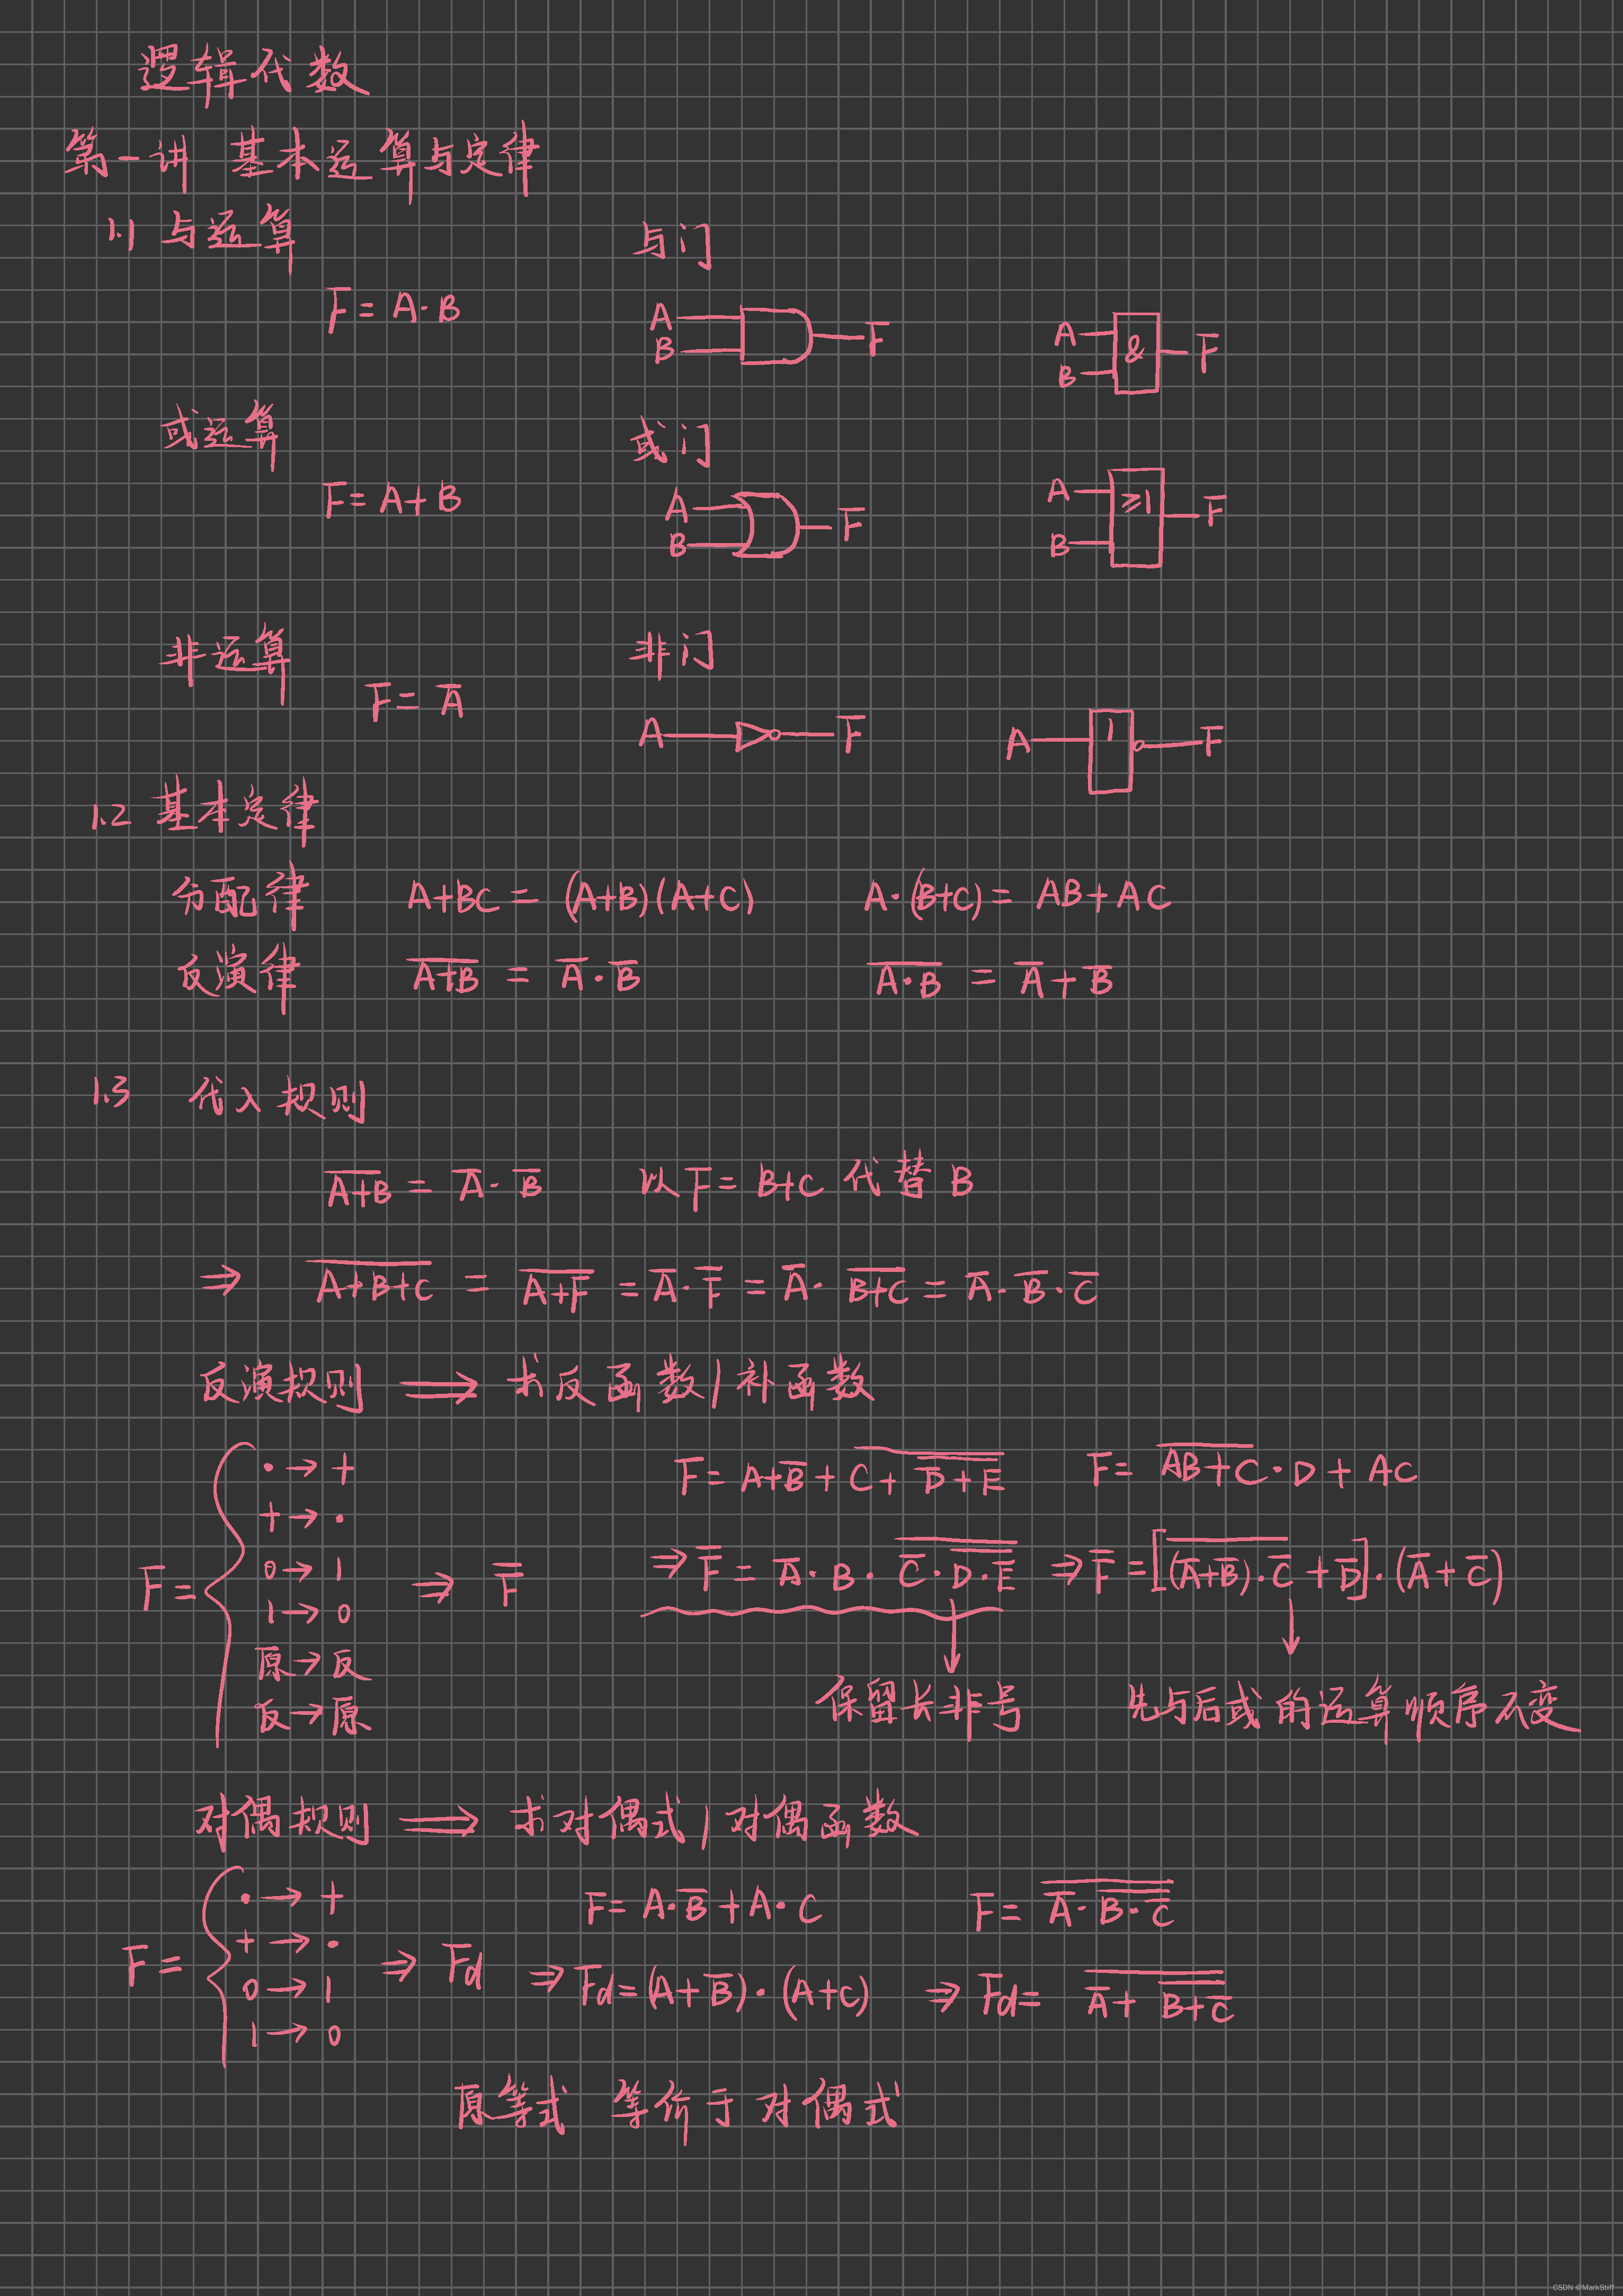 逻辑代数
第一讲 基本运算与定律
1.1 与运算 与门
F = A·B A B F A B & F
或运算 或门
F = A+B A B F A B ≥1 F
非运算 非门
F = A̅ A F A 1 F
1.2 基本定律
分配律 A+BC = (A+B)(A+C) A·(B+C) = AB+AC
反演律 \overline{A+B} = A̅·B̅ \overline{A·B} = A̅+B̅
1.3 代入规则
\overline{A+B} = A̅·B̅ 以F=B+C 代替 B
⇒ \overline{A+B+C} = \overline{A+F} = A̅·F̅ = A̅·\overline{B+C} = A̅·B̅·C̅
反演规则 ⟹ 求反函数/补函数
F = { ·→+ +→· 0→1 1→0 原→反 反→原 ⇒ F̅
F = A+B̅+\overline{C+\overline{D̅+E}} F = \overline{AB+C}·D+AC
⇒ F̅ = A̅·B·\overline{C̅·\overline{D·E̅}} ⇒ F̅ = [\overline{(A̅+B̅)·C̅}+D̅]·(A̅+C̅)
保留长非号 先与后或的运算顺序不变
对偶规则 ⟹ 求对偶式/对偶函数
F = { ·→+ +→· 0→1 1→0 ⇒ Fd
F = A·B̅+A·C F = \overline{A̅·\overline{B·C̅}}
⇒ Fd = (A+B̅)·(A+C) ⇒ Fd = \overline{A̅+\overline{B+C̅}}
原等式 等价于 对偶式
CSDN @MarkStiff